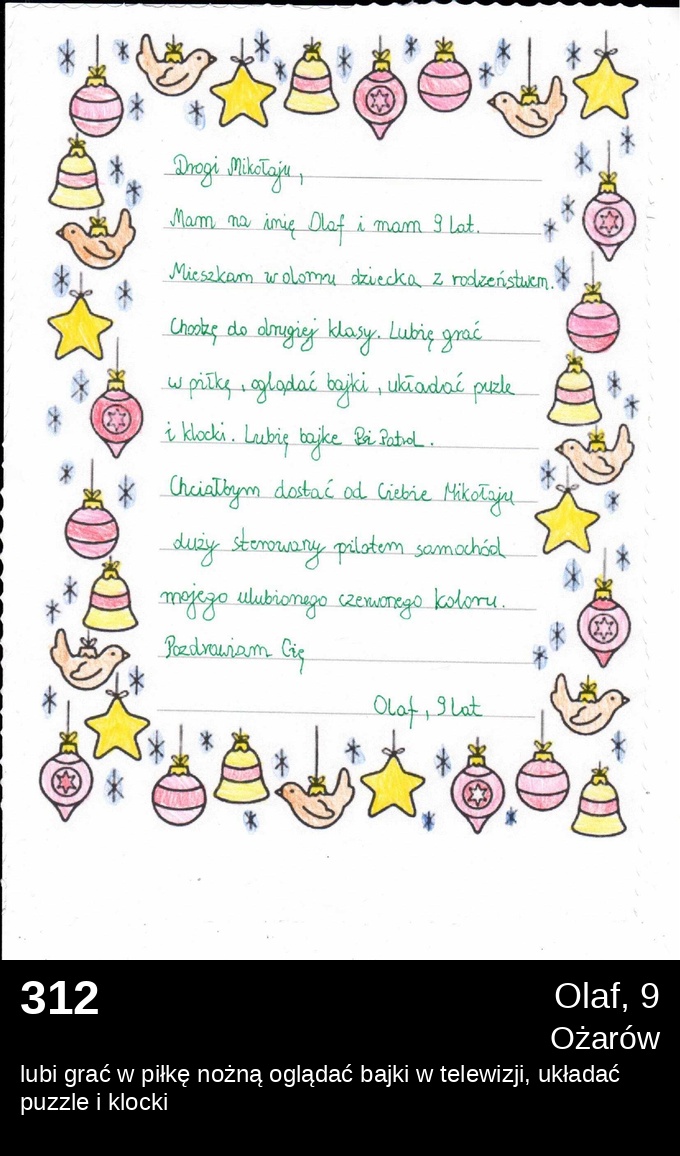 Drogi Mikołaju,
Mam na imię Olaf i mam 9 lat.
Mieszkam w domu dziecka z rodzeństwem.
Chodzę do drugiej klasy. Lubię grać
w piłkę, oglądać bajki, układać puzle
i klocki. Lubię bajke Psi Patrol.
Chciałbym dostać od Ciebie Mikołaju
duży sterowany pilotem samochód
mojego ulubionego czerwonego koloru.
Pozdrawiam Cię
Olaf, 9 lat
312
Olaf, 9
Ożarów
lubi grać w piłkę nożną oglądać bajki w telewizji, układać
puzzle i klocki